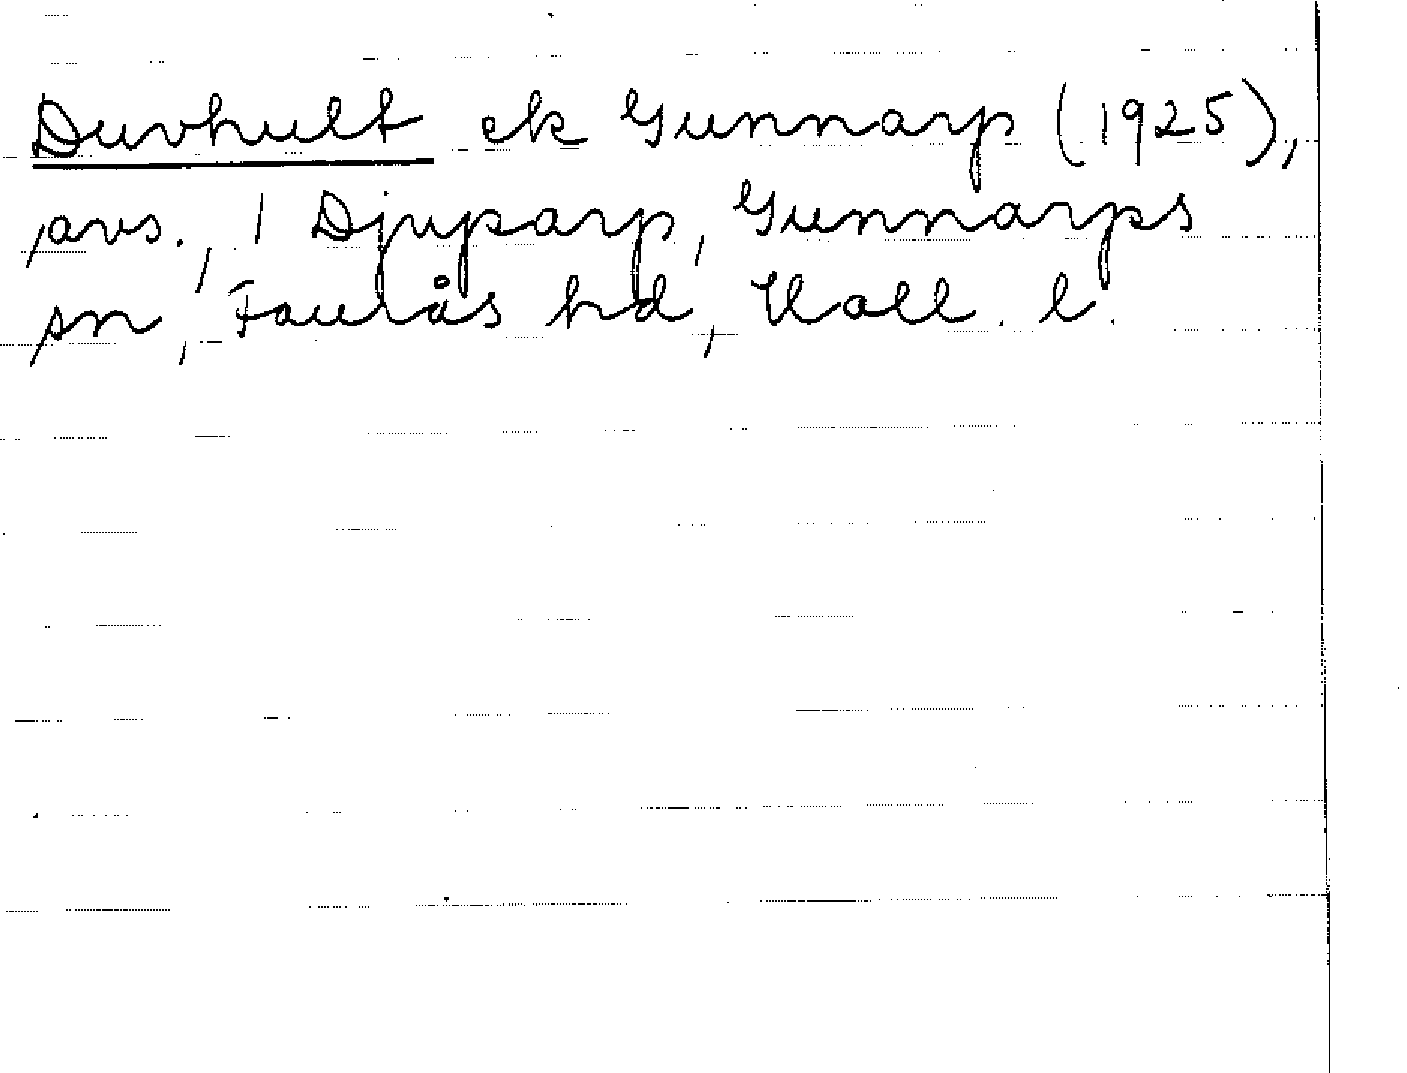 Duvhult ek Gunnarp (1925),
avs., 1 Djuparp, Gunnarps
sn, Faurås hd, Hall. l.